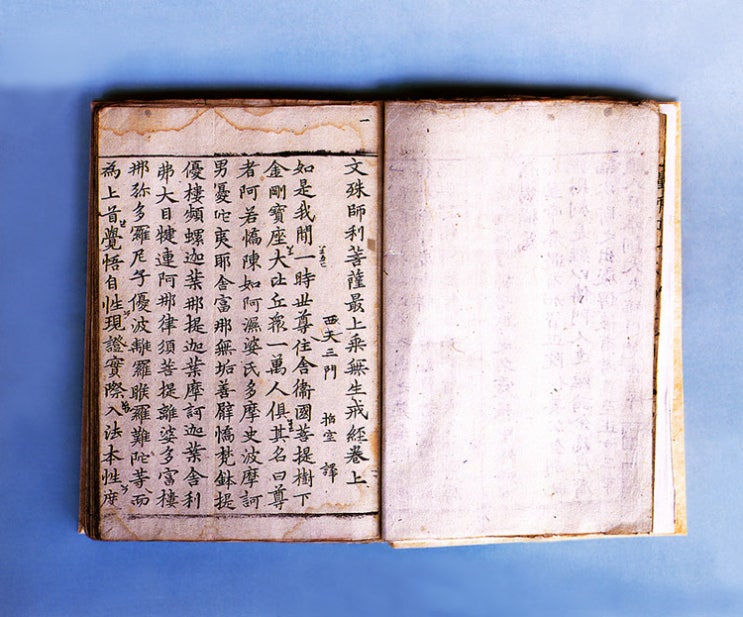 一
文殊師利菩薩最上乘無生戒經卷上
西天三門 指空 譯
如是我聞一時世尊住舍衞國菩提樹下
金剛寶座大比丘衆一萬人俱其名曰尊
者阿若憍陳如阿濕婆氏多摩史波摩訶
男憂陀夷耶舍富那無垢善臂憍梵鉢提
優樓頻螺迦葉那提迦葉摩訶迦葉舍利
弗大目犍連阿那律須菩提離婆多富樓
那弥多羅尼子優波離羅睺羅難陀等而
為上首覺悟自性現證實際入法本性度